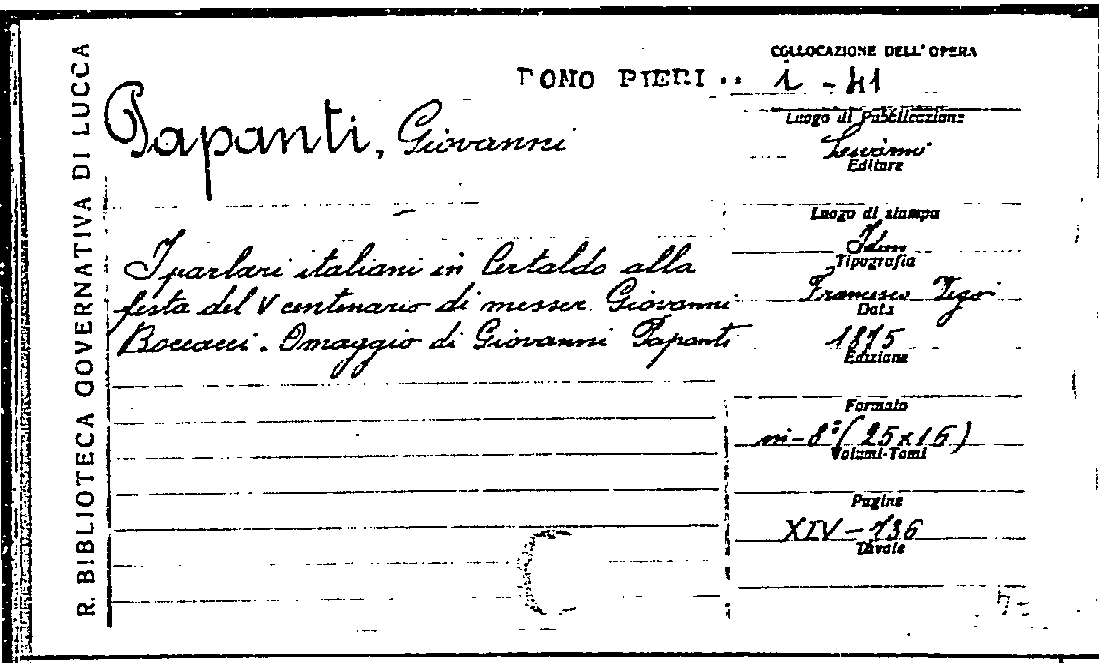 R. BIBLIOTECA GOVERNATIVA DI LUCCA
COLLOCAZIONE DELL' OPERA
DONO PIERI .. 1 - 41
Papanti, Giovanni
Luogo di Pubblicazione
Livorno
Editore
Luogo di stampa
Idem
Tipografia
Francesco Vigo
Data
1875
Edizione
Formato
in-8° (25x16)
Volumi-Tomi
Pagine
XIV-736
Tavole
I parlari italiani in Certaldo alla
festa del V centenario di messer Giovanni
Boccacci. Omaggio di Giovanni Papanti